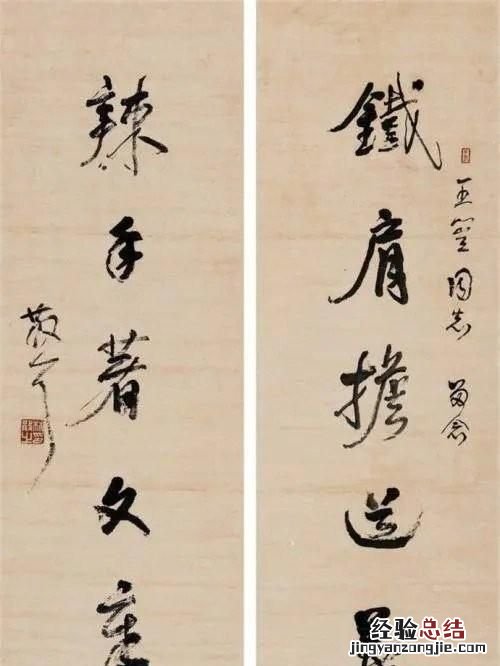 同志 留念
鐵肩擔道義
辣手著文章
散耳
经验总结
www.jingyanzongjie.com